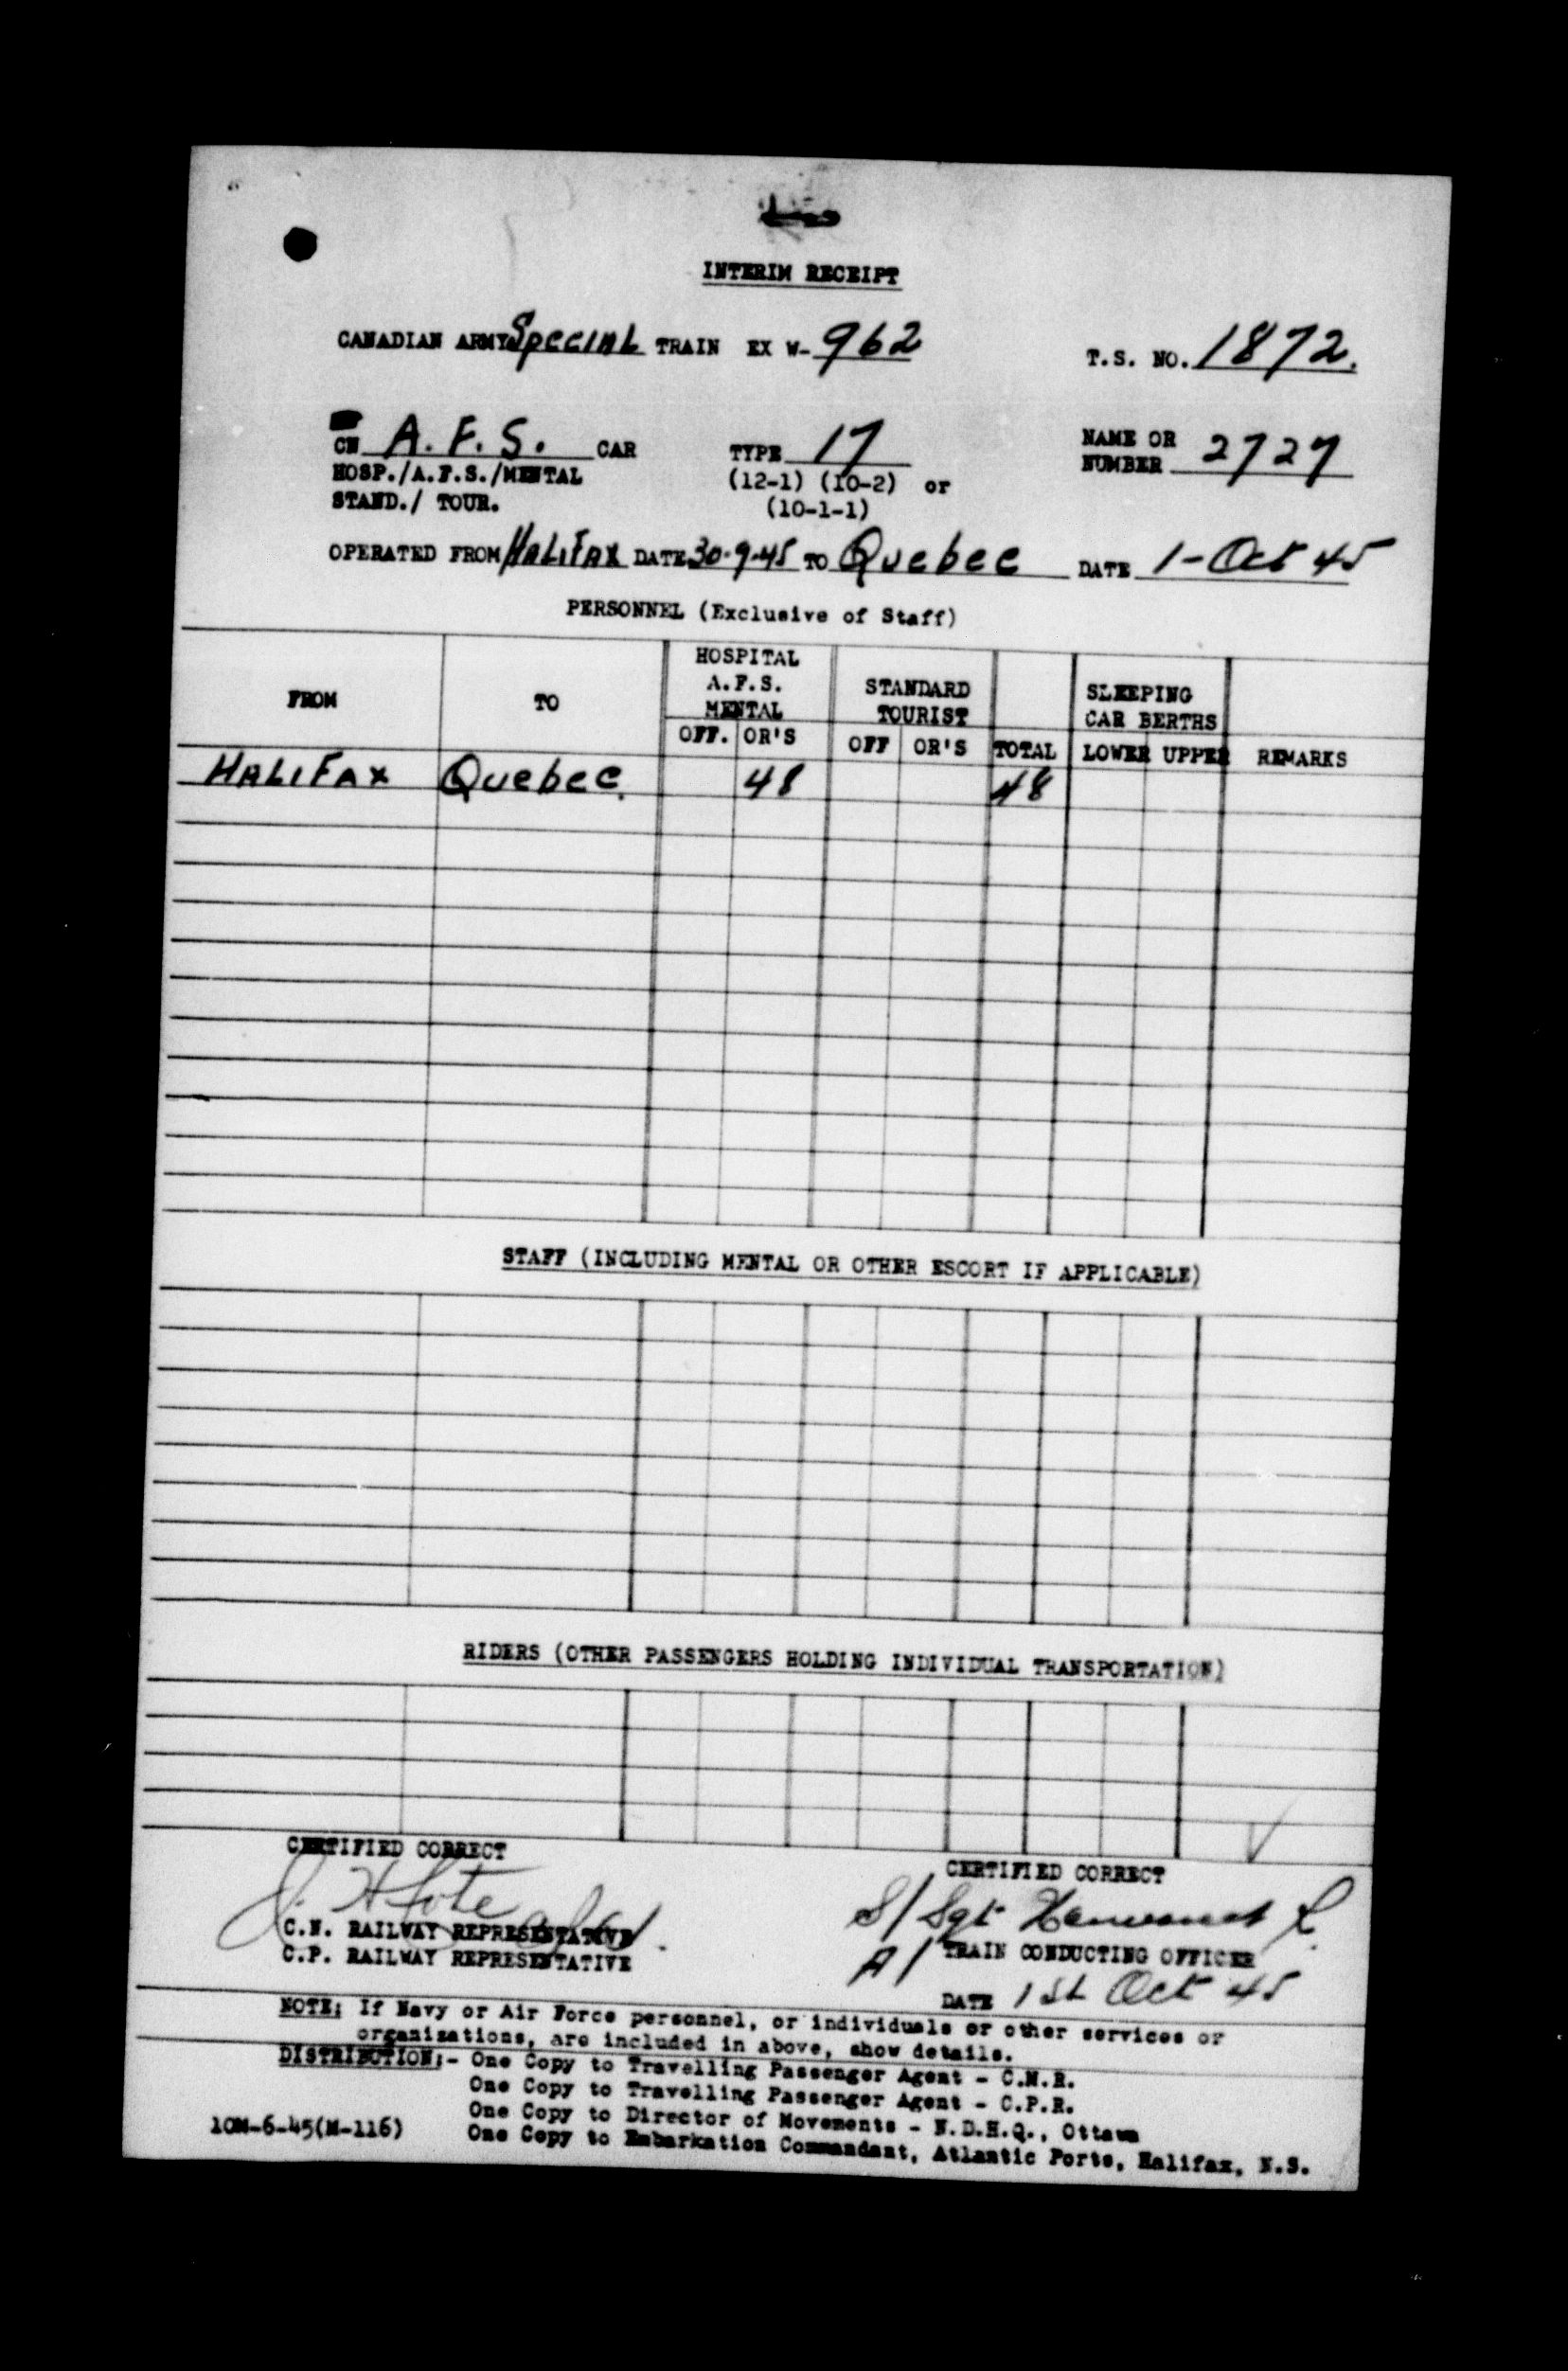 INTERIM RECEIPT
CANADIAN ARMY Special TRAIN EX W- 962 T.S. NO. 1872.
CN A.F.S. CAR TYPE 17 NAME OR NUMBER 2727
HOSP./A.F.S./MENTAL (12-1) (10-2) or
STAND./ TOUR. (10-1-1)
OPERATED FROM Halifax DATE 30-9-45 TO Quebec DATE 1-Oct 45
PERSONNEL (Exclusive of Staff)
FROM TO HOSPITAL A.F.S. MENTAL STANDARD TOURIST SLEEPING CAR BERTHS
OFF. OR'S OFF OR'S TOTAL LOWER UPPER REMARKS
Halifax Quebec. 48 48
STAFF (INCLUDING MENTAL OR OTHER ESCORT IF APPLICABLE)
RIDERS (OTHER PASSENGERS HOLDING INDIVIDUAL TRANSPORTATION)
CERTIFIED CORRECT CERTIFIED CORRECT
S/Sgt
C.N. RAILWAY REPRESENTATIVE
C.P. RAILWAY REPRESENTATIVE
A/ TRAIN CONDUCTING OFFICER
DATE 1st Oct 45
NOTE: If Navy or Air Force personnel, or individuals or other services or
organizations, are included in above, show details.
DISTRIBUTION:- One Copy to Travelling Passenger Agent - C.N.R.
One Copy to Travelling Passenger Agent - C.P.R.
One Copy to Director of Movements - N.D.H.Q., Ottawa
10M-6-45(M-116) One Copy to Embarkation Commandant, Atlantic Ports, Halifax, N.S.